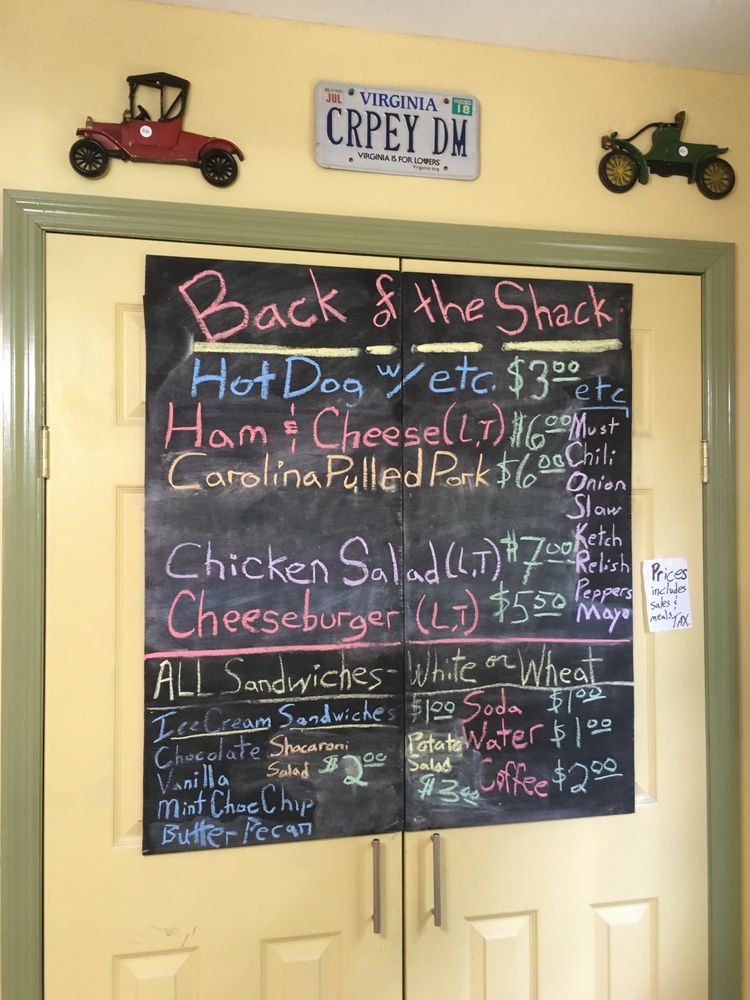 JUL VIRGINIA 18
CRPEY DM
VIRGINIA IS FOR LOVERS
Virginia.org
Back of the Shack
Hot Dog w/ etc. $3.00
Ham & Cheese (L,T) $6.00
Carolina Pulled Pork $6.00
Chicken Salad (L,T) $7.00
Cheeseburger (L,T) $5.50
etc
Must
Chili
Onion
Slaw
Ketch
Relish
Peppers
Mayo
Prices
includes
sales &
meals TAX.
ALL Sandwiches - White or Wheat
Ice Cream Sandwiches $1.00
Chocolate
Vanilla
Mint Choc Chip
Butter Pecan
Shacaroni
Salad $2.00
Potato
Salad
$3.00
Soda $1.00
Water $1.00
Coffee $2.00